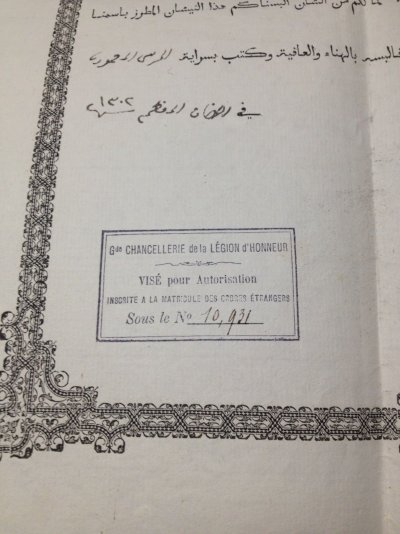 لكم من الشان البسناكم هذا النيشان المطرز باسمنا
فالبسه بالهناء والعافية وكتب بسراية المرسى المعمورة
في رمضان المعظم سنة ١٣٠٢
Gde CHANCELLERIE de la LÉGION D'HONNEUR
VISÉ pour Autorisation
INSCRITE A LA MATRICULE DES ORDRES ÉTRANGERS
Sous le No 10,931